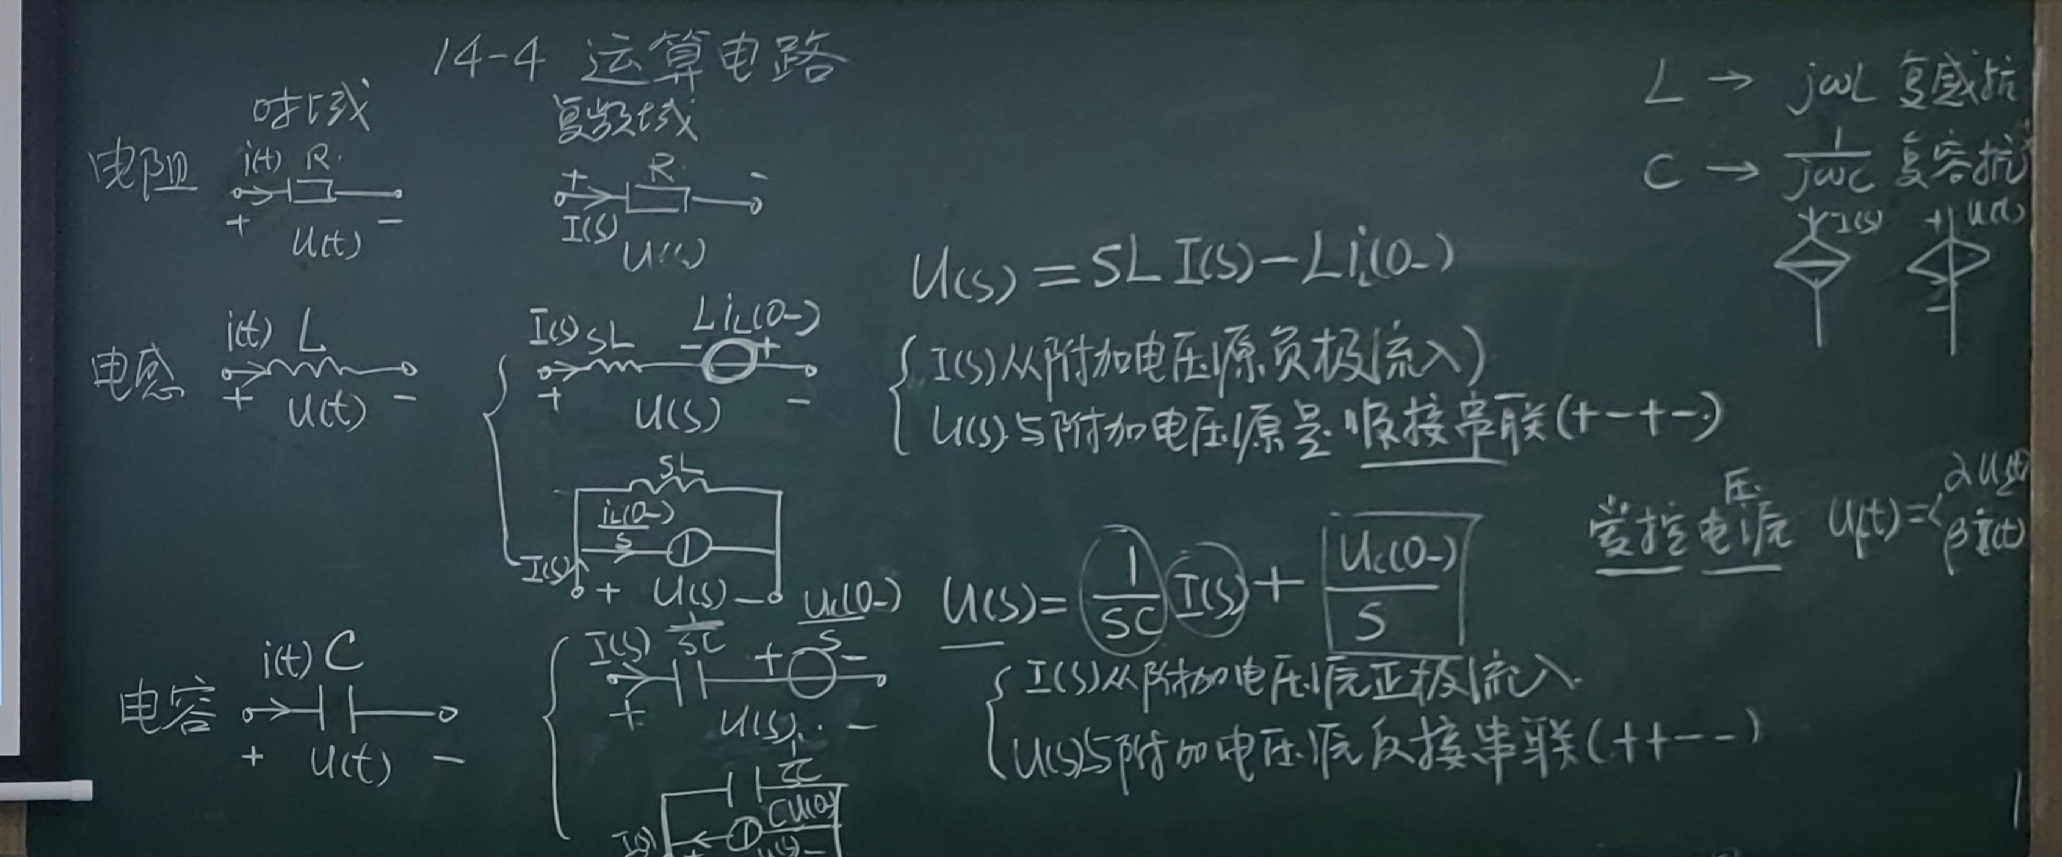 14-4 运算电路
时域
复数域
电阻
i(t) R
+ U(t) -
+ R -
I(s) U(s)
电感
i(t) L
+ U(t) -
I(s) SL LiL(0-)
- +
+ U(s) -
SL
iL(0-)
S
I(s) + U(s) -
电容
i(t) C
+ U(t) -
I(s) 1/SC Uc(0-)/S
+ -
+ U(s) -
1/SC
I(s)
U(s) = SL I(s) - LiL(0-)
I(s)从附加电压源负极流入
U(s)与附加电压源是顺接串联(+-+-)
U(s) = 1/SC I(s) + Uc(0-)/S
I(s)从附加电压源正极流入
U(s)与附加电压源反接串联(++--)
L → jωL 复感抗
C → 1/jωC 复容抗
I(s)
+
-
受控电压源